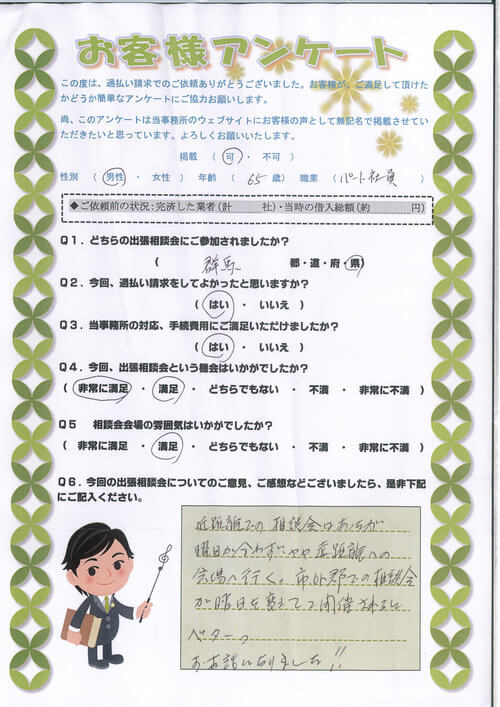 お客様アンケート
この度は、過払い請求でのご依頼ありがとうございました。お客様が、ご満足して頂けた
かどうか簡単なアンケートにご協力お願いします。
尚、このアンケートは当事務所のウェブサイトにお客様の声として無記名で掲載させてい
ただきたいと思っています。よろしくお願いいたします。
掲載 （ 可 ・ 不可 ）
性別 （ 男性 ・ 女性 ） 年齢 （ 65 歳） 職業 （ パート社員 ）
◆ご依頼前の状況：完済した業者（計 社）・当時の借入総額（約 円）
Q1．どちらの出張相談会にご参加されましたか？
（ 群馬 都・道・府・県）
Q2．今回、過払い請求をしてよかったと思いますか？
（ はい ・ いいえ ）
Q3．当事務所の対応、手続費用にご満足いただけましたか？
（ はい ・ いいえ ）
Q4．今回、出張相談会という機会はいかがでしたか？
（ 非常に満足 ・ 満足 ・ どちらでもない ・ 不満 ・ 非常に不満 ）
Q5 相談会会場の雰囲気はいかがでしたか？
（ 非常に満足 ・ 満足 ・ どちらでもない ・ 不満 ・ 非常に不満 ）
Q6．今回の出張相談会についてのご意見、ご感想などございましたら、是非下記
にご記入ください。
近距離での相談会は
曜日が合わずやや遠距離への
会場へ行く。市外郡での相談会
が曜日を変えてで開催されると
ベター。
お世話になりました!!